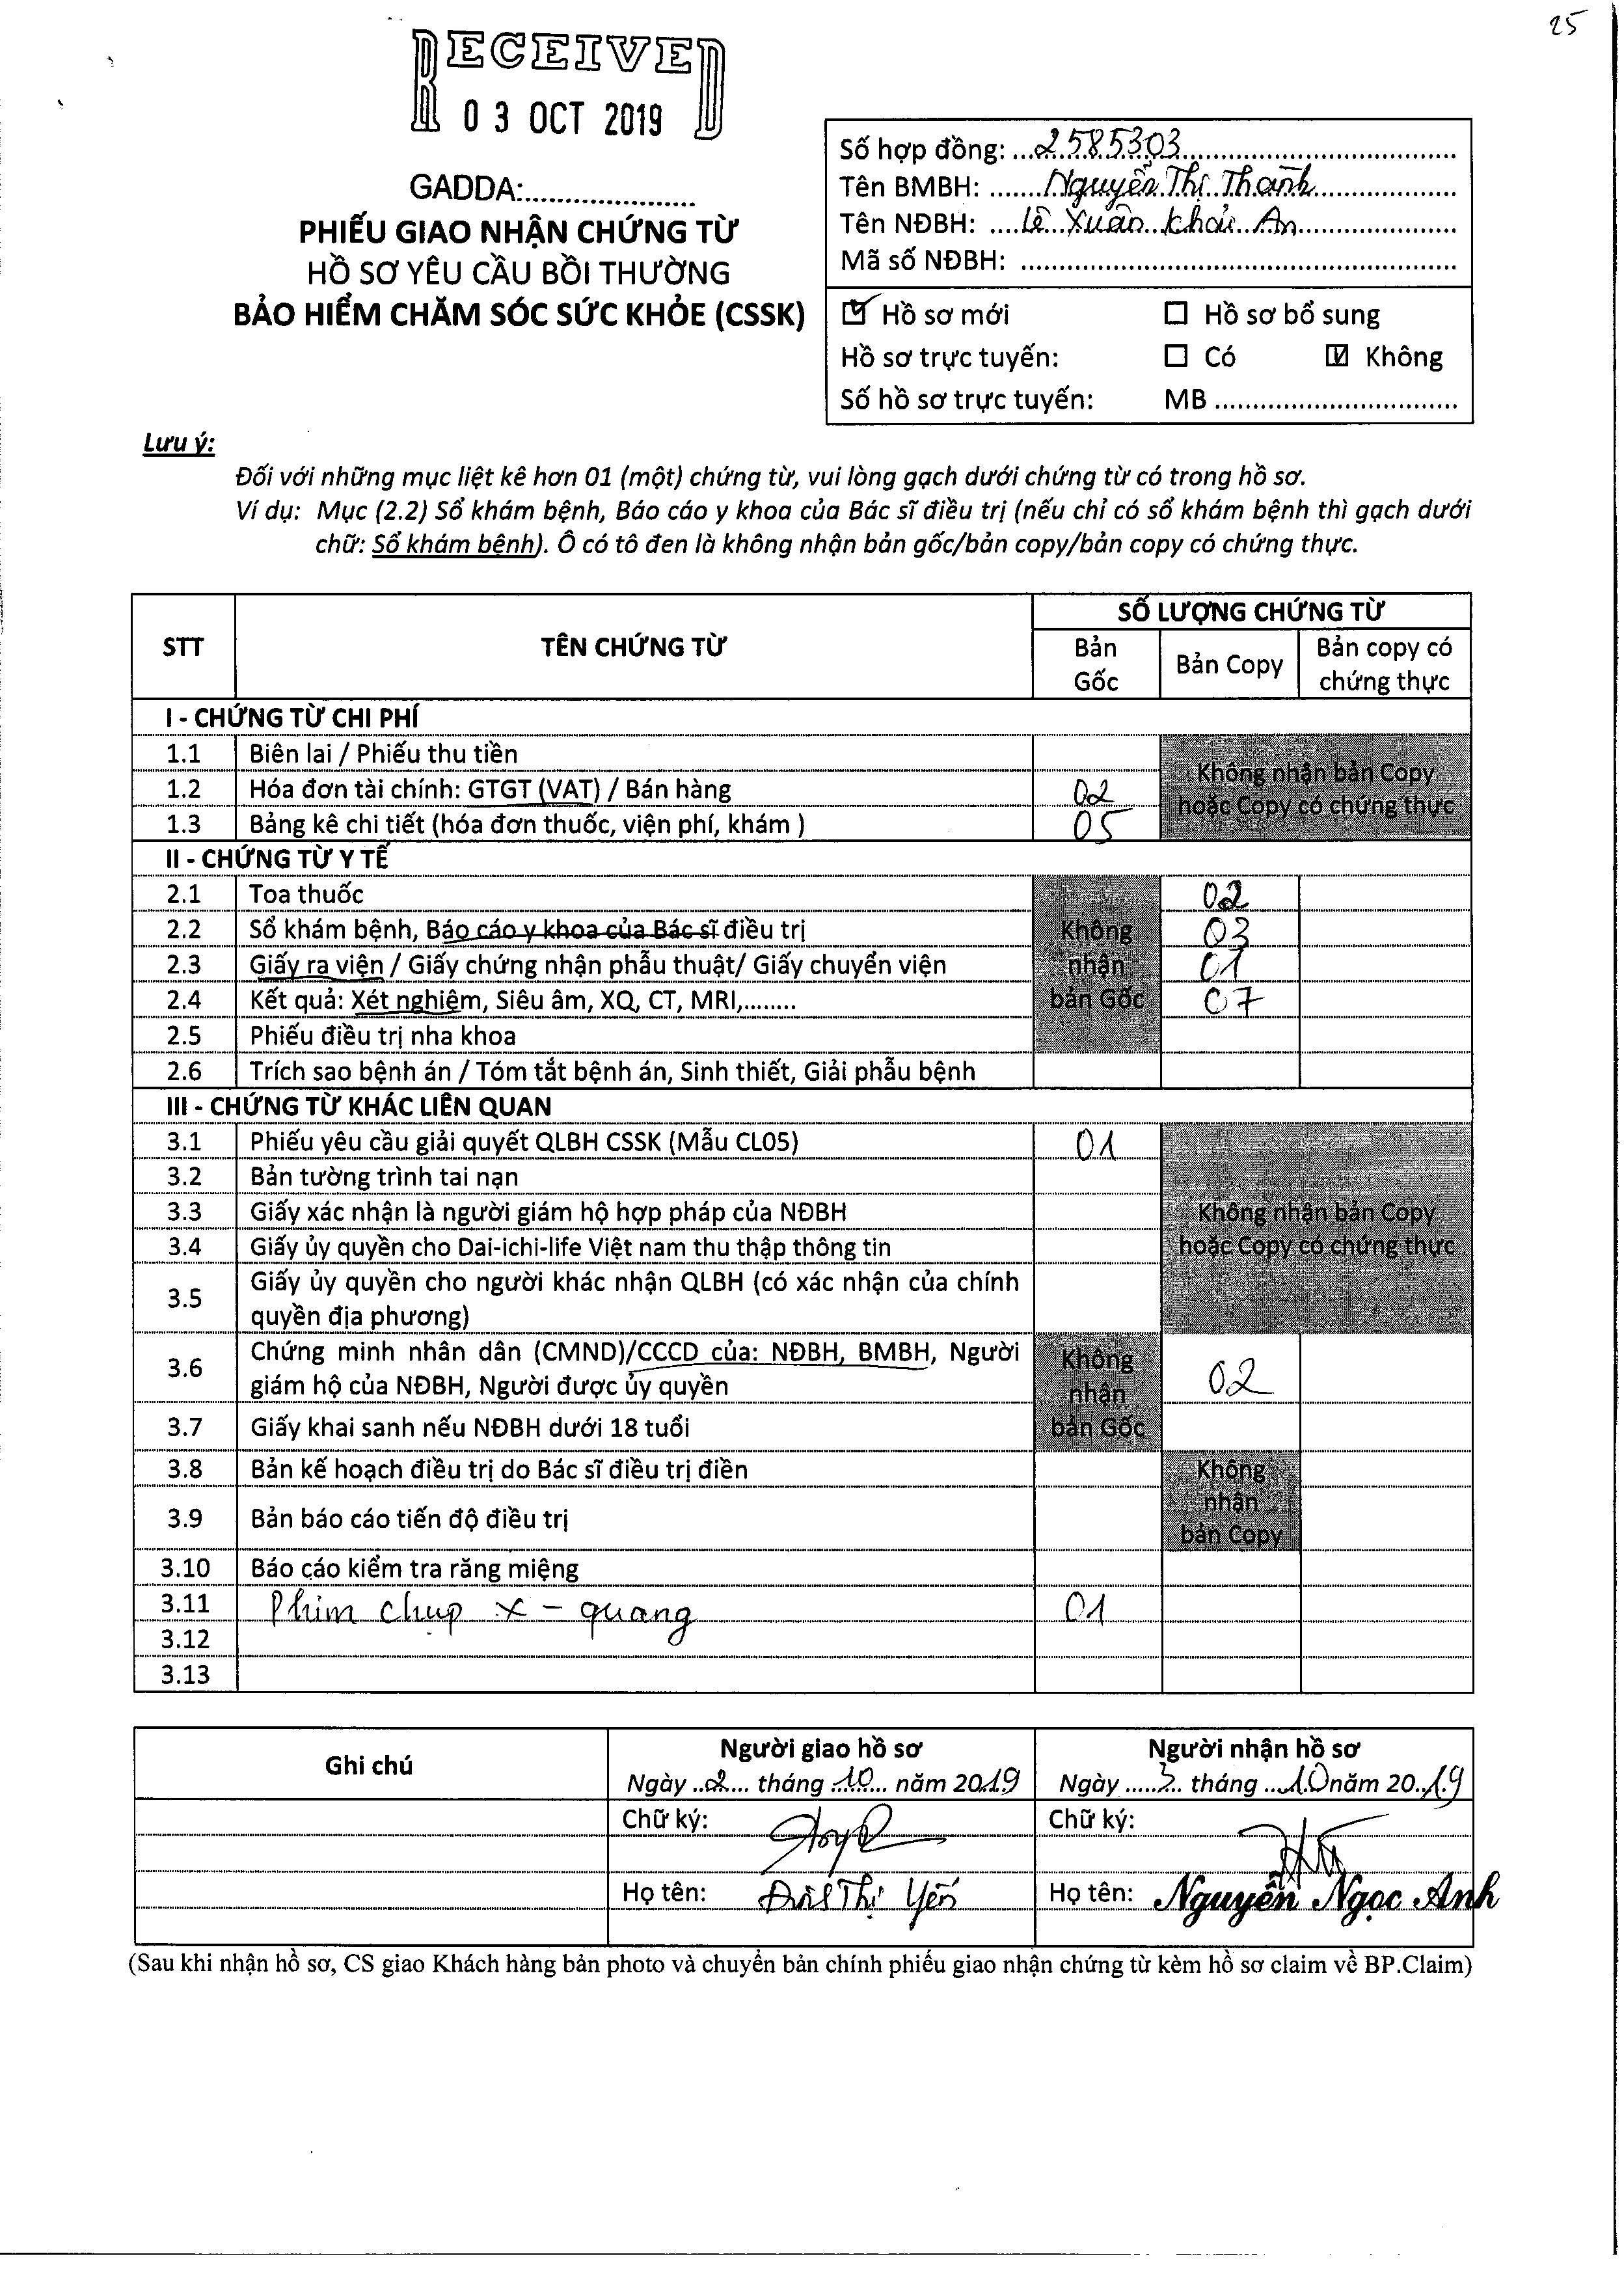 25
RECEIVED
03 OCT 2019
GADDA:....................
PHIẾU GIAO NHẬN CHỨNG TỪ
HỒ SƠ YÊU CẦU BỒI THƯỜNG
BẢO HIỂM CHĂM SÓC SỨC KHỎE (CSSK)
Số hợp đồng: 2585303
Tên BMBH: Nguyễn Thị Thanh
Tên NĐBH: Lê Xuân Khải An
Mã số NĐBH: ....................
☑ Hồ sơ mới ☐ Hồ sơ bổ sung
Hồ sơ trực tuyến: ☐ Có ☑ Không
Số hồ sơ trực tuyến: MB ....................
Lưu ý:
Đối với những mục liệt kê hơn 01 (một) chứng từ, vui lòng gạch dưới chứng từ có trong hồ sơ.
Ví dụ: Mục (2.2) Sổ khám bệnh, Báo cáo y khoa của Bác sĩ điều trị (nếu chỉ có sổ khám bệnh thì gạch dưới
chữ: Sổ khám bệnh). Ô có tô đen là không nhận bản gốc/bản copy/bản copy có chứng thực.
STT TÊN CHỨNG TỪ SỐ LƯỢNG CHỨNG TỪ
Bản Gốc Bản Copy Bản copy có chứng thực
I - CHỨNG TỪ CHI PHÍ
1.1 Biên lai / Phiếu thu tiền
Không nhận bản Copy
hoặc Copy có chứng thực
1.2 Hóa đơn tài chính: GTGT (VAT) / Bán hàng 02
1.3 Bảng kê chi tiết (hóa đơn thuốc, viện phí, khám ) 05
II - CHỨNG TỪ Y TẾ
2.1 Toa thuốc 02
2.2 Sổ khám bệnh, Báo cáo y khoa của Bác sĩ điều trị 03
Không nhận bản Gốc
2.3 Giấy ra viện / Giấy chứng nhận phẫu thuật/ Giấy chuyển viện 01
2.4 Kết quả: Xét nghiệm, Siêu âm, XQ, CT, MRI,........ 07
2.5 Phiếu điều trị nha khoa
2.6 Trích sao bệnh án / Tóm tắt bệnh án, Sinh thiết, Giải phẫu bệnh
III - CHỨNG TỪ KHÁC LIÊN QUAN
3.1 Phiếu yêu cầu giải quyết QLBH CSSK (Mẫu CL05) 01
3.2 Bản tường trình tai nạn
3.3 Giấy xác nhận là người giám hộ hợp pháp của NĐBH
Không nhận bản Copy
hoặc Copy có chứng thực
3.4 Giấy ủy quyền cho Dai-ichi-life Việt nam thu thập thông tin
3.5 Giấy ủy quyền cho người khác nhận QLBH (có xác nhận của chính
quyền địa phương)
3.6 Chứng minh nhân dân (CMND)/CCCD của: NĐBH, BMBH, Người
giám hộ của NĐBH, Người được ủy quyền 02
Không nhận bản Gốc
3.7 Giấy khai sanh nếu NĐBH dưới 18 tuổi
3.8 Bản kế hoạch điều trị do Bác sĩ điều trị điền
Không nhận bản Copy
3.9 Bản báo cáo tiến độ điều trị
3.10 Báo cáo kiểm tra răng miệng
3.11 Phim chụp x - quang 01
3.12
3.13
Ghi chú Người giao hồ sơ Người nhận hồ sơ
Ngày 2 tháng 10 năm 2019 Ngày 3 tháng 10 năm 2019
Chữ ký: Chữ ký:
Họ tên: Thị Yến Họ tên: Nguyễn Ngọc Anh
(Sau khi nhận hồ sơ, CS giao Khách hàng bản photo và chuyển bản chính phiếu giao nhận chứng từ kèm hồ sơ claim về BP.Claim)